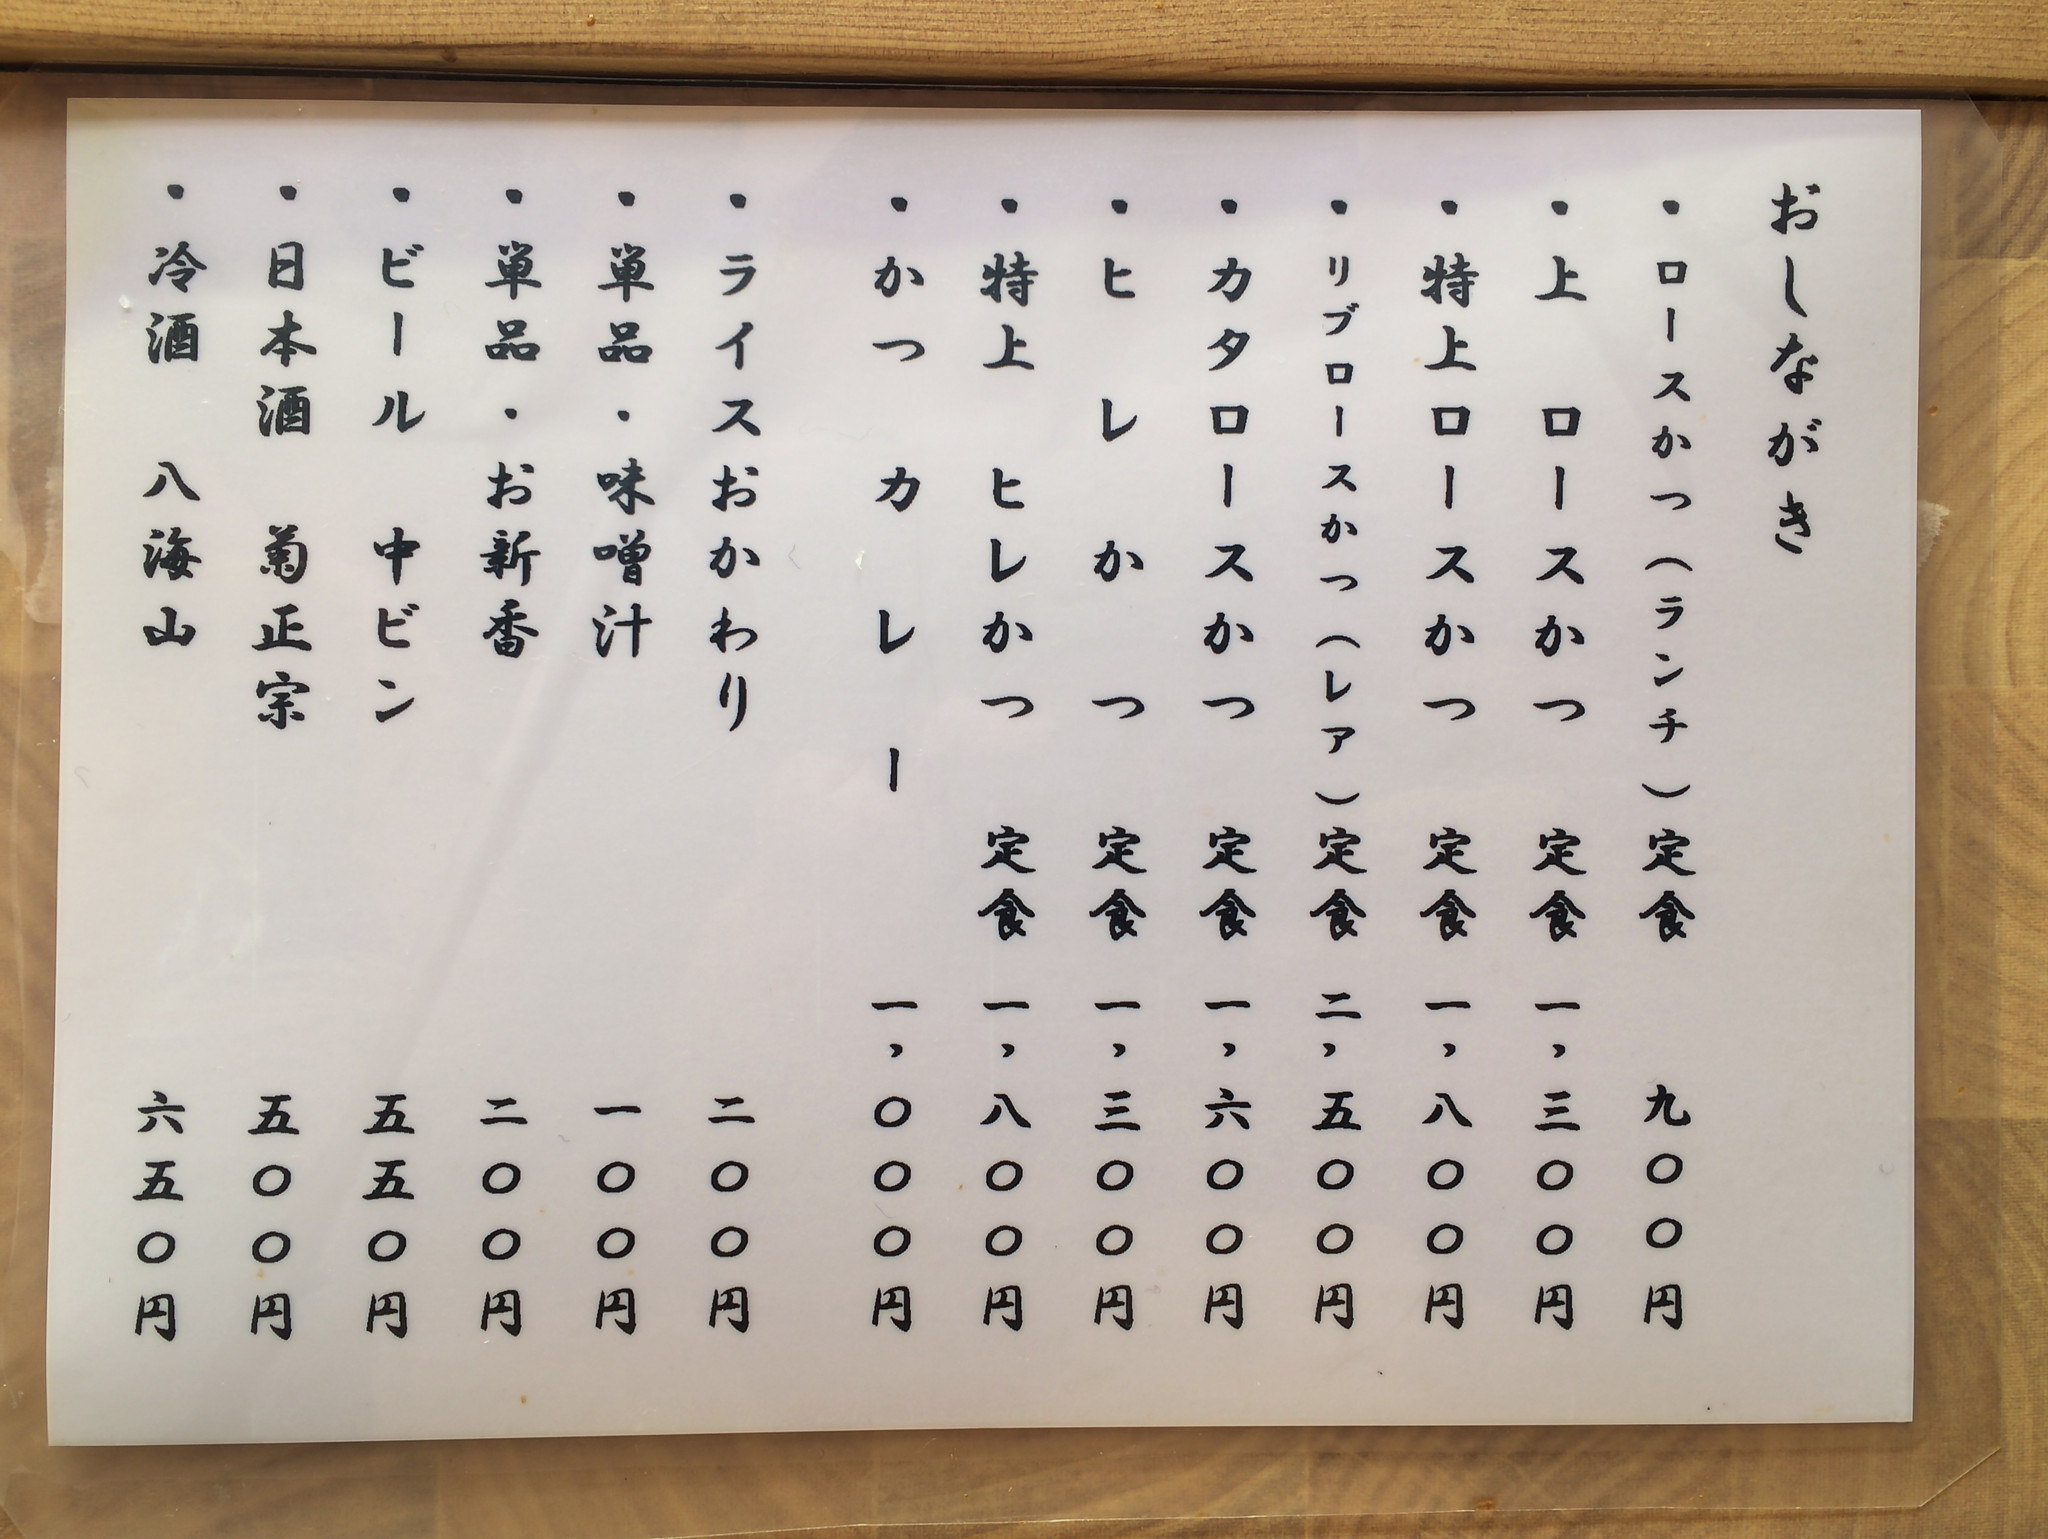 おしながき
・ロースかつ（ランチ）定食 九〇〇円
・上 ロースかつ 定食 一，三〇〇円
・特上ロースかつ 定食 一，八〇〇円
・リブロースかつ（レア）定食 二，五〇〇円
・カタロースかつ 定食 一，六〇〇円
・ヒレかつ 定食 一，三〇〇円
・特上 ヒレかつ 定食 一，八〇〇円
・かつカレー 一，〇〇〇円
・ライスおかわり 二〇〇円
・単品・味噌汁 一〇〇円
・単品・お新香 二〇〇円
・ビール 中ビン 五五〇円
・日本酒 菊正宗 五〇〇円
・冷酒 八海山 六五〇円